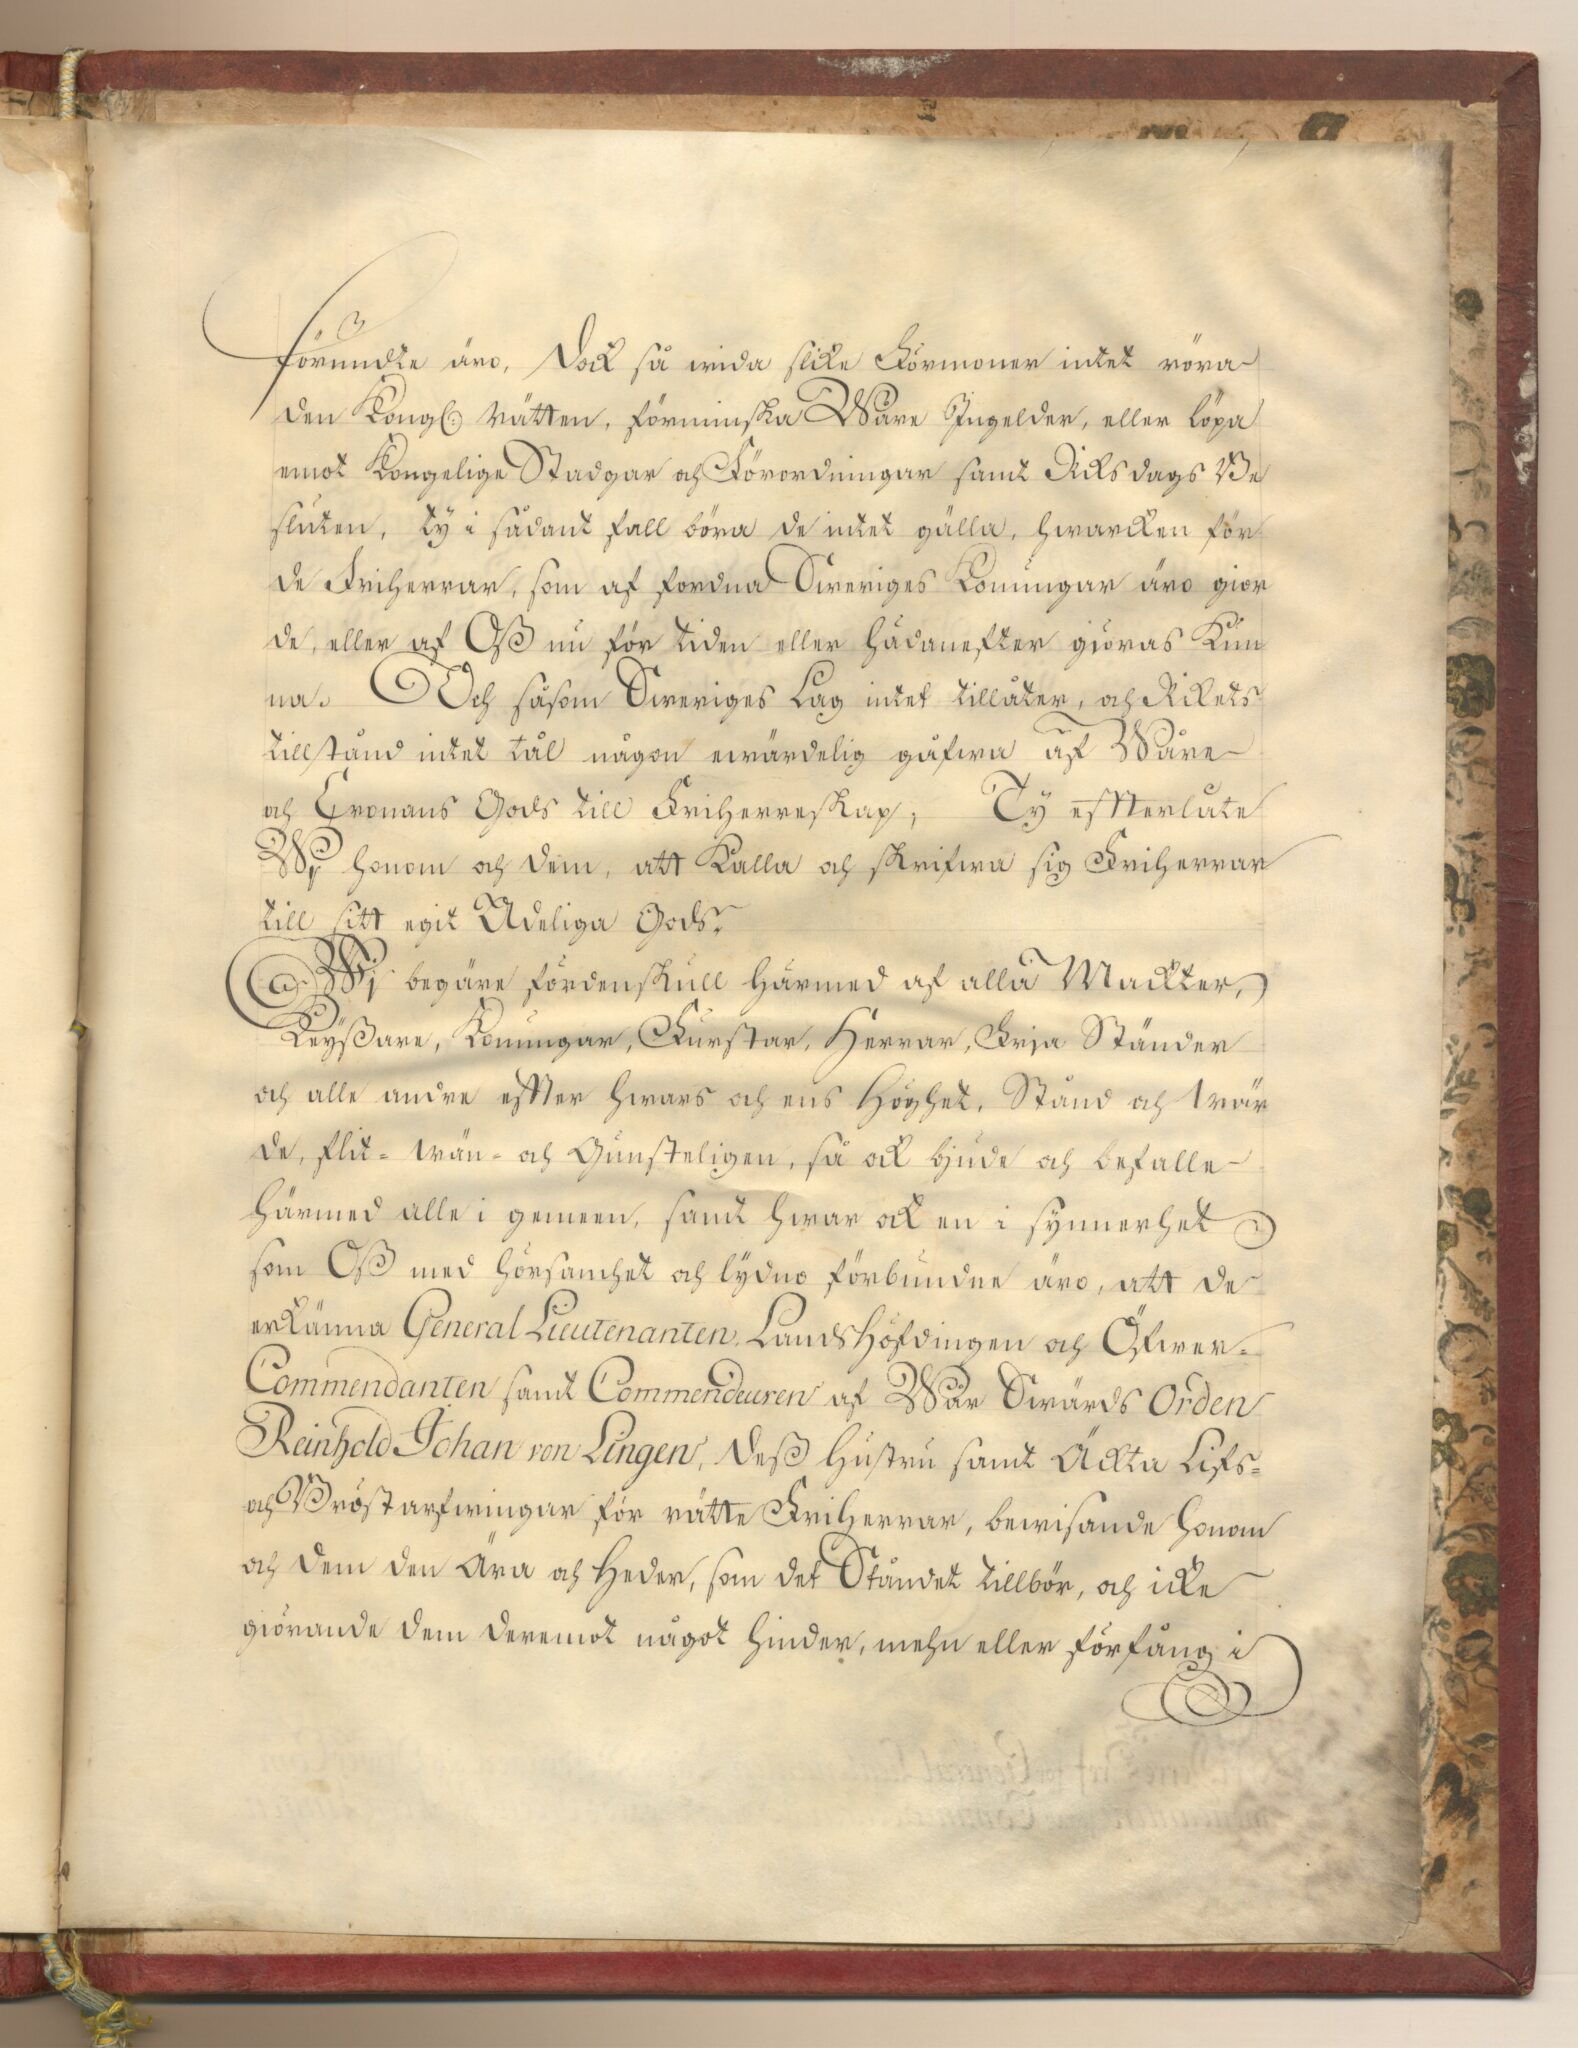 förundte äro, Dock så wida slike Förmoner intet röra
den Kongl: Rätten, förminska Wåre Ingelder, eller löpa
emot Kongelige Stadgar och Förordningar samt Riksdags Be
sluten, ty i sådant fall böra de intet gälla, hwarcken för
de Friherrar, som af fordna Sweriges Konungar äro gior
de, eller af Oß nu för tiden eller hädanefter giöras kun
na. Och såsom Sweriges Lag intet tillåter, och Rikets
tillstånd intet tål någon ewärdelig gåfwa af Wåre
och Cronans Gods till Friherreskap; Ty effterlåte
Wij honom och dem, att kalla och skrifwa sig Friherrar
till sitt egit Adeliga Gods.
Wij begäre fördenskull härmed af alla Mackter,
Keÿßare, Konungar, Furstar, Herrar, Frja Ständer
och alle andre effter hwars och ens Höghet, Stånd och wär
de, flit- wän- och Gunsteligen, så ock biude och befalle
härmed alle i gemeen, samt hwar ock en i synnerhet
som Oß med hörsamhet och lydno förbundne äro, att de
erkänna General Lieutenanten, Landshöfdingen och Öfwer-
Commendanten samt Commendeuren af Wår Swärds Orden
Reinhold Johan von Lingen, deß Hustru samt Äckta Lifs-
och Bröstarfwingar för rätte Friherrar, bewisande honom
och dem den Ära och Heder, som det Ståndet tillbör, och icke
giörande dem deremot något hinder, mehn eller förfång i